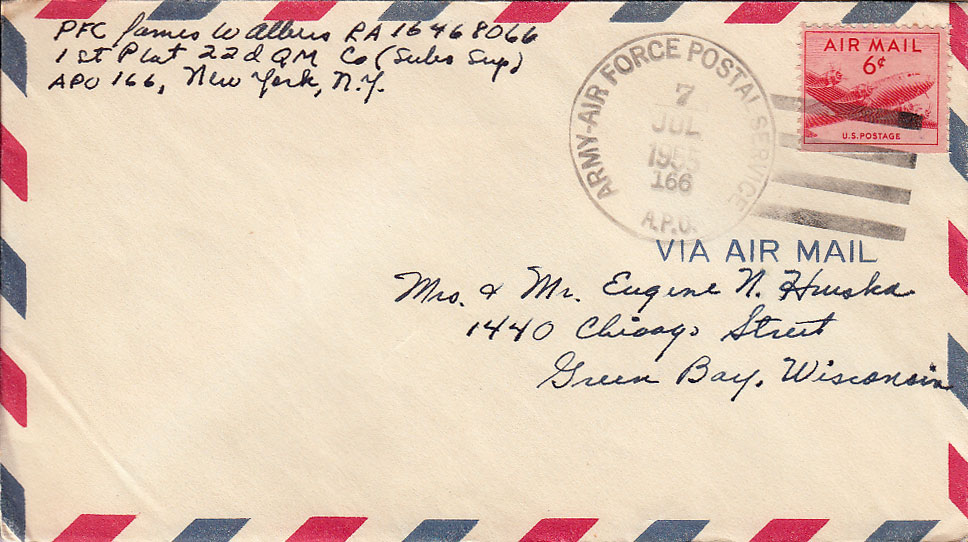 PFC James W Albers RA 16468066
1st Plat 22d QM Co (Subs Sup)
APO 166, New York, N.Y.
ARMY-AIR FORCE POSTAL SERVICE
7
JUL
1955
166
A.P.O.
AIR MAIL
6¢
U.S. POSTAGE
VIA AIR MAIL
Mrs. & Mr. Eugene N. Hruska
1440 Chicago Street
Green Bay, Wisconsin